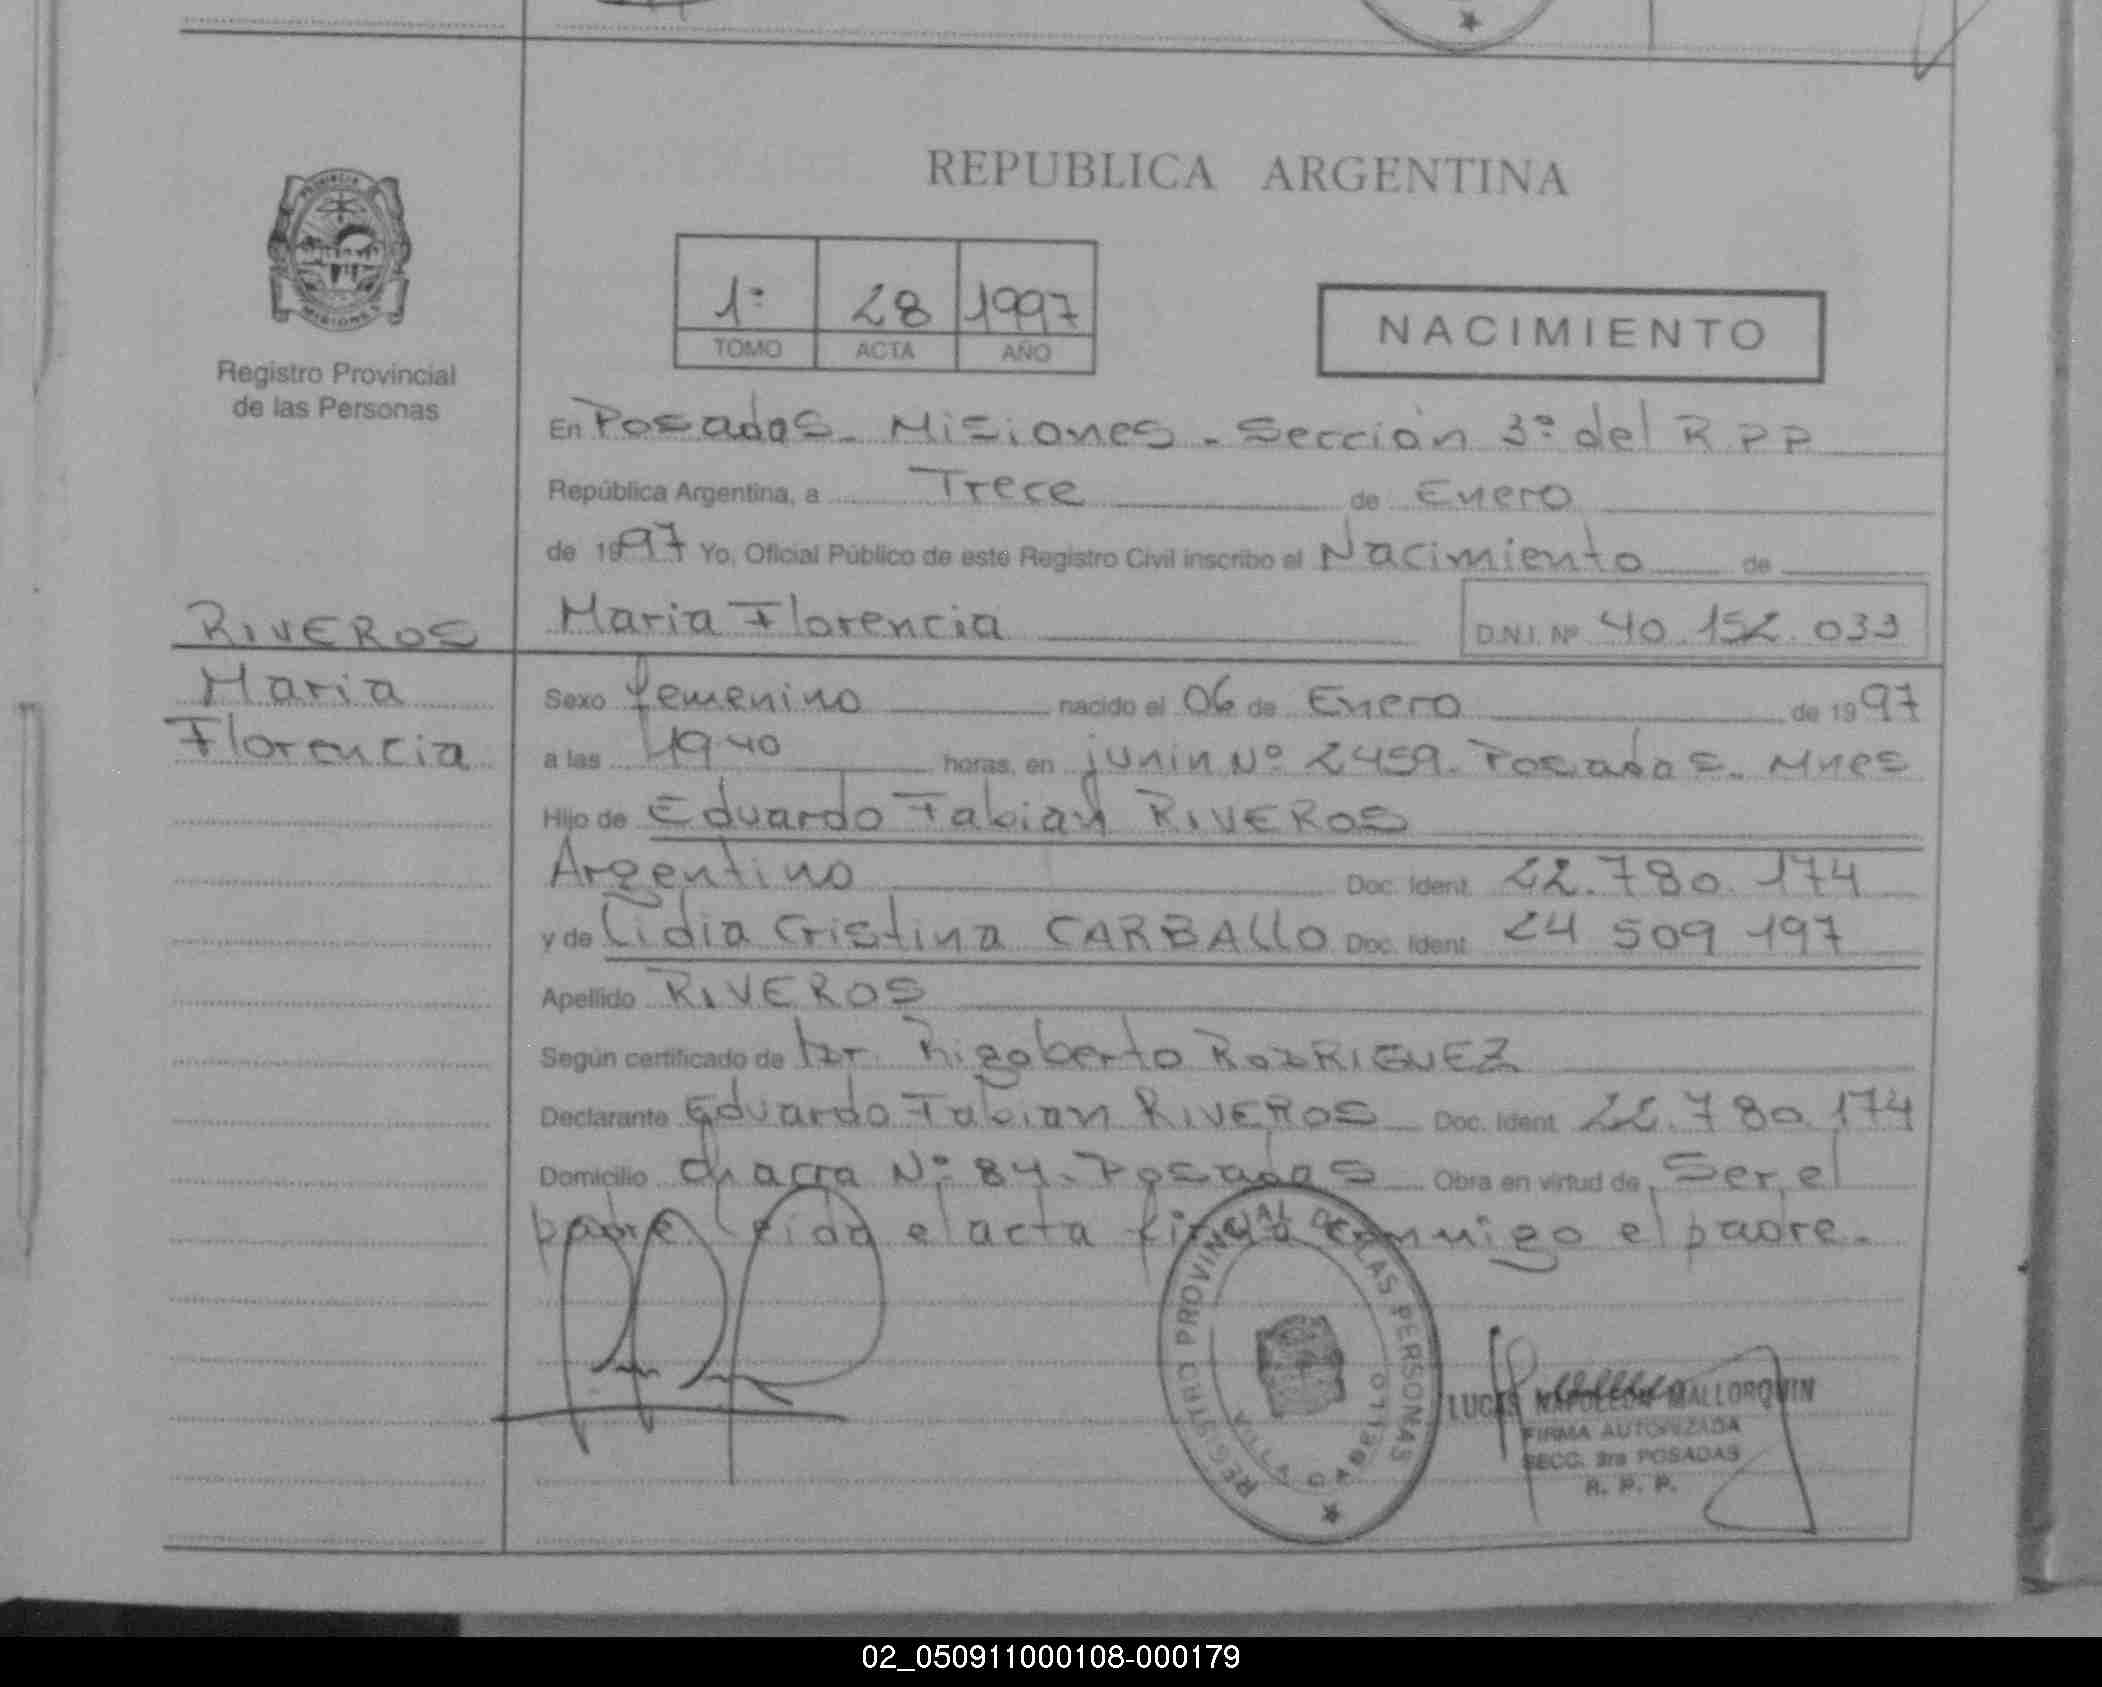 REPUBLICA ARGENTINA
PROVINCIA
MISIONES
Registro Provincial
de las Personas
1º 28 1997
TOMO ACTA AÑO
NACIMIENTO
En Posadas - Misiones - Sección 3º del R.P.P
República Argentina, a Trece de Enero
de 1997 Yo, Oficial Público de este Registro Civil inscribo el Nacimiento de
RIVEROS
Maria
Florencia
Maria Florencia D.N.I. Nº 40.152.033
Sexo femenino nacido el 06 de Enero de 1997
a las 19 40 horas, en junin Nº 2459. Posadas - Mnes
Hijo de Eduardo Fabian RIVEROS
Argentino Doc. Ident. 22.780.174
y de Lidia Cristina CARBALLO Doc. Ident. 24 509 197
Apellido RIVEROS
Según certificado de Dr. Rigoberto RODRIGUEZ
Declarante Eduardo Fabian RIVEROS Doc. Ident. 22.780.174
Domicilio chacra Nº 84. Posadas Obra en virtud de Ser el
padre. Leida el acta firma conmigo el padre.
REGISTRO PROVINCIAL DE LAS PERSONAS
VILLA CABELLO
LUCAS NAPOLEON MALLORQUIN
FIRMA AUTORIZADA
SECC. 3ra POSADAS
R. P. P.
02_050911000108-000179